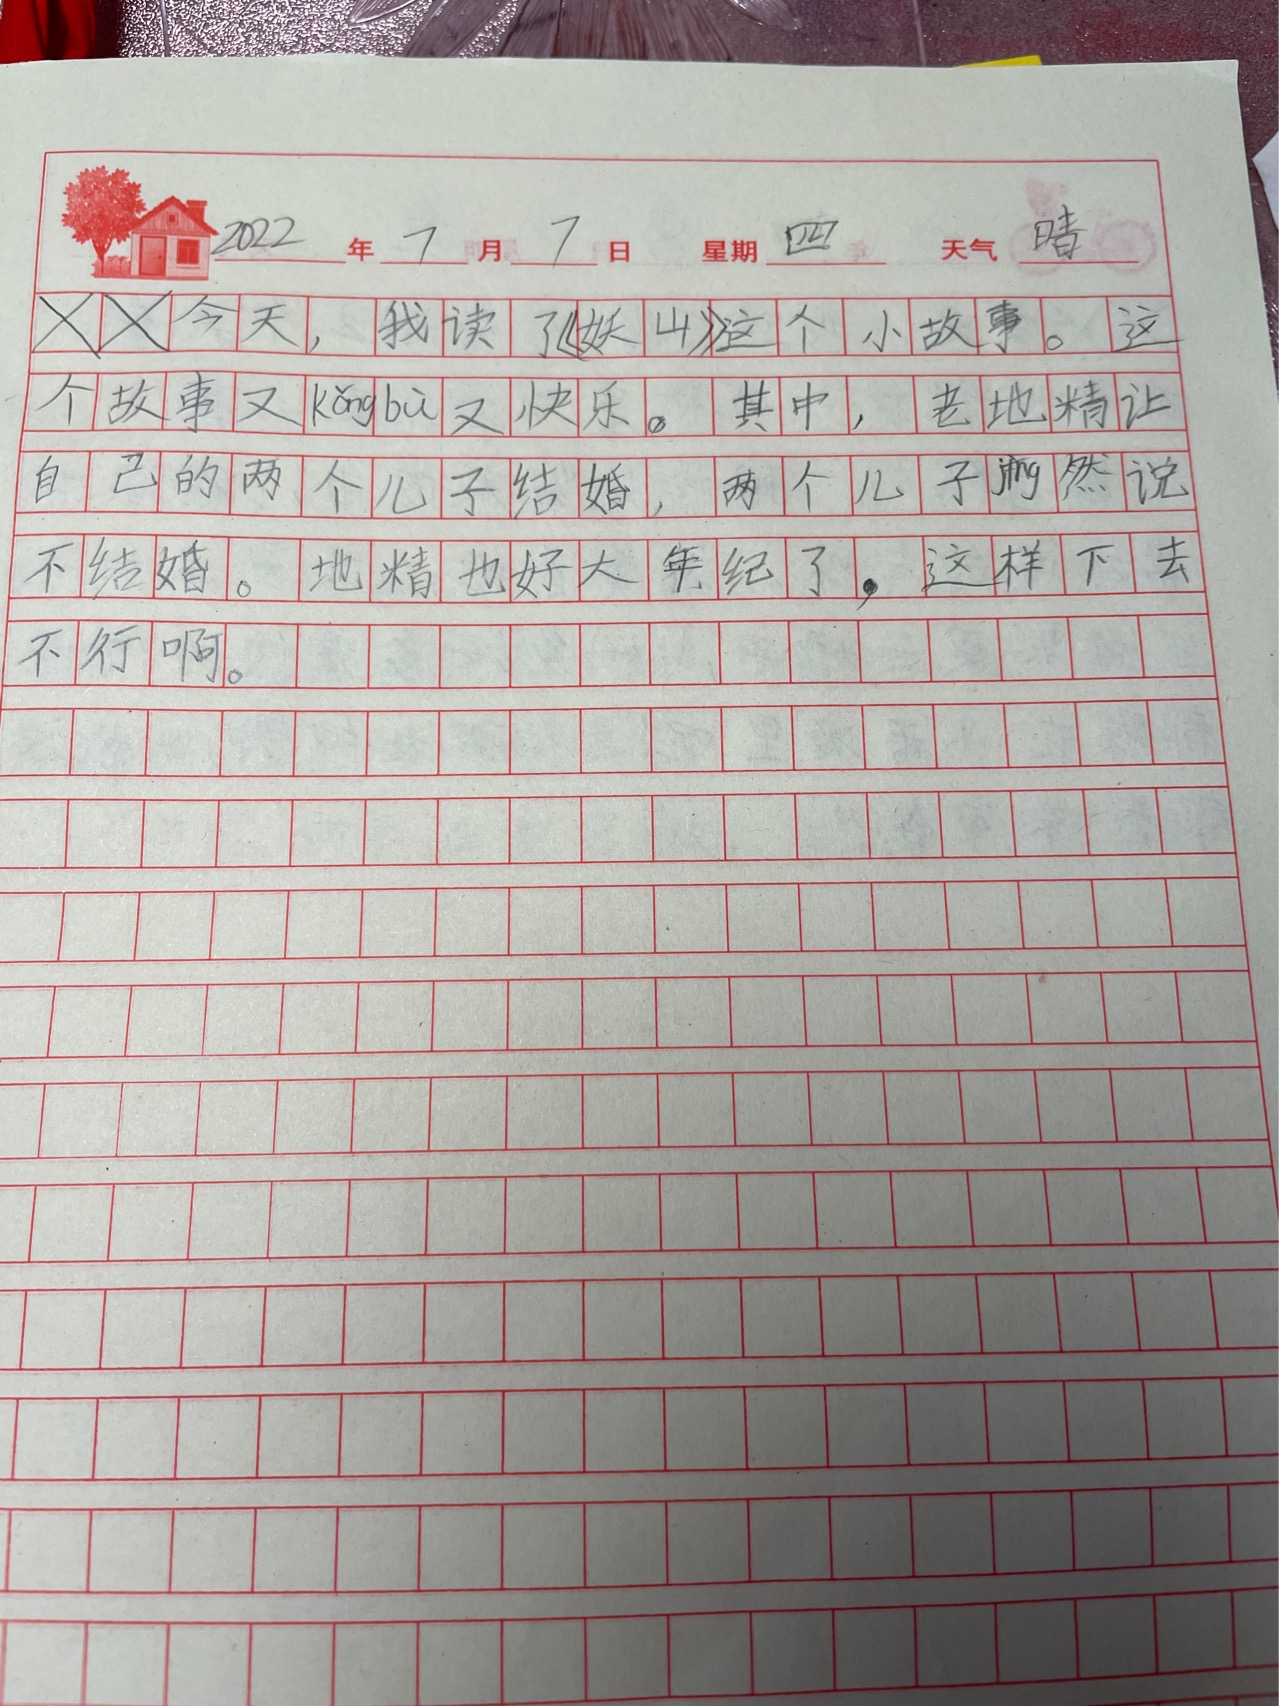 2022年7月7日 星期四 天气晴
XX今天，我读了《妖山》这个小故事。这
个故事又kǒngbù又快乐。其中，老地精让
自己的两个儿子结婚，两个儿子jìng然说
不结婚。地精也好大年纪了，这样下去
不行啊。